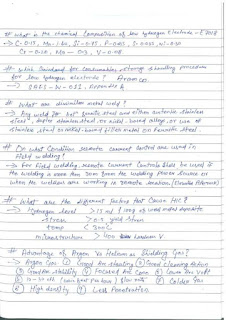 # What is the chemical composition of low hydrogen electrode - E7018
→ C-0.15, Mn-1.60, Si-0.75, P-0.035, S-0.035, Ni-0.30
Cr-0.20, Mo-0.3, V-0.08
# Which standard for consumables, storage handling procedure
for low hydrogen electrode? Aramco
→ SAES-W-011, Appendix A
# What are dissimilar metal weld?
→ Any weld for between ferritic steel and either austenitic stainless
steel, duplex stainless steel or nickel based alloys, or use of
stainless steel or nickel-based filler metal on ferritic steel.
# On what condition remote current control are used in
field welding?
→ For field welding, remote current controls shall be used if
the welding is more than 30m from the welding power source or
when the welders are working in remote location.
# What are the different factors that cause HIC?
→ Hydrogen level > 15 ml / 100g of weld metal deposite
stress > 0.5 yield stress
temp < 300°C
microstructure > 400 hardness V
# Advantage of Argon Vs Helium as shielding gas?
→ Argon Gas ① Good Arc starting ② Good cleaning action
③ Good Arc stability ④ Focused Arc Cone ⑤ Lower Arc volt
⑥ 10-30 cfh flow rate ⑦ Colder Gas
⑧ High density ⑨ Less Penetration